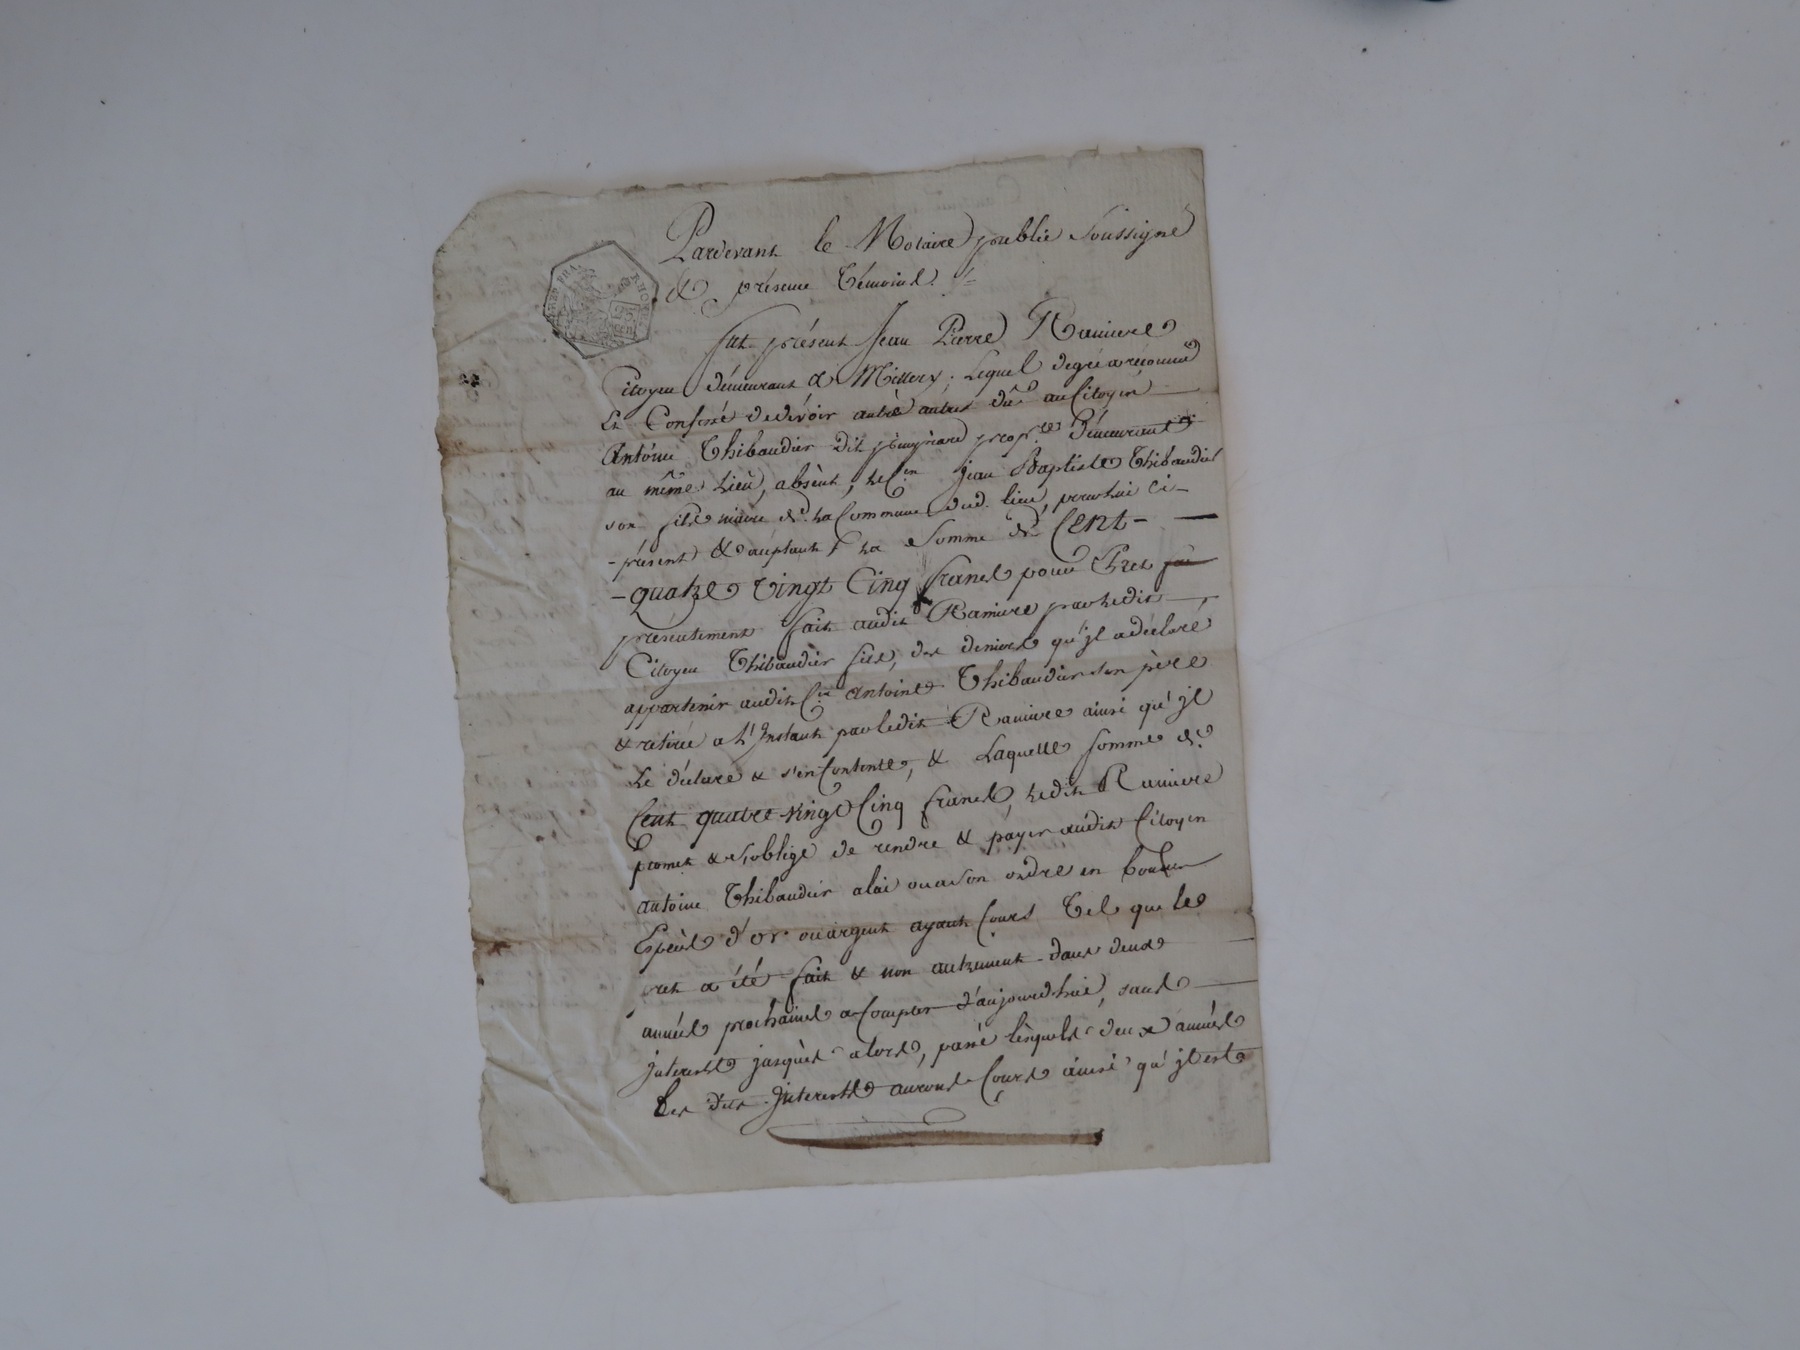 REP. FRA.
RHONE
Pardevant le Notaire public soussigné
& présence témoins.
fut présent Jean Pierre Raniere
Citoyen démeurant a Millery, lequel degré a réconnu
Et Confessé dedévoir entre autres du au Citoyen
Antoine Thibaudier dit propre. démeurant
au même Lieu, absent, le Cen Jean Baptiste Thibaudier
son fils maire de la Commune dud. lieu, pour lui ci-
-présent & acéptant, la Somme de Cent-
-quatre Vingt Cinq francs pour Pret
présentement fait audit Raniere par ledit
Citoyen Thibaudier fils, des deniers qu'jl a déclaré
appartenir audit Cen Antoine Thibaudier son père
& retirée a L'Instant par ledit Raniere ainsi qu'jl
Le déclare & s'en Contente, & Laquelle somme de
Cent quatre Vingt Cinq francs, ledit Raniere
promet & s'oblige de rendre & payer audit Citoyen
antoine Thibaudier a lui ou a son ordre en bonnes
Espèces d'or ou argent ayant Cours Tel que le
pret a été fait & non autrement dans deux
années prochaines a Compter d'aujourdhui, sans
jnterests jusques alors, passé lesquels deux années
Les dits Jnterests auront Cours ainsi qu'jl est